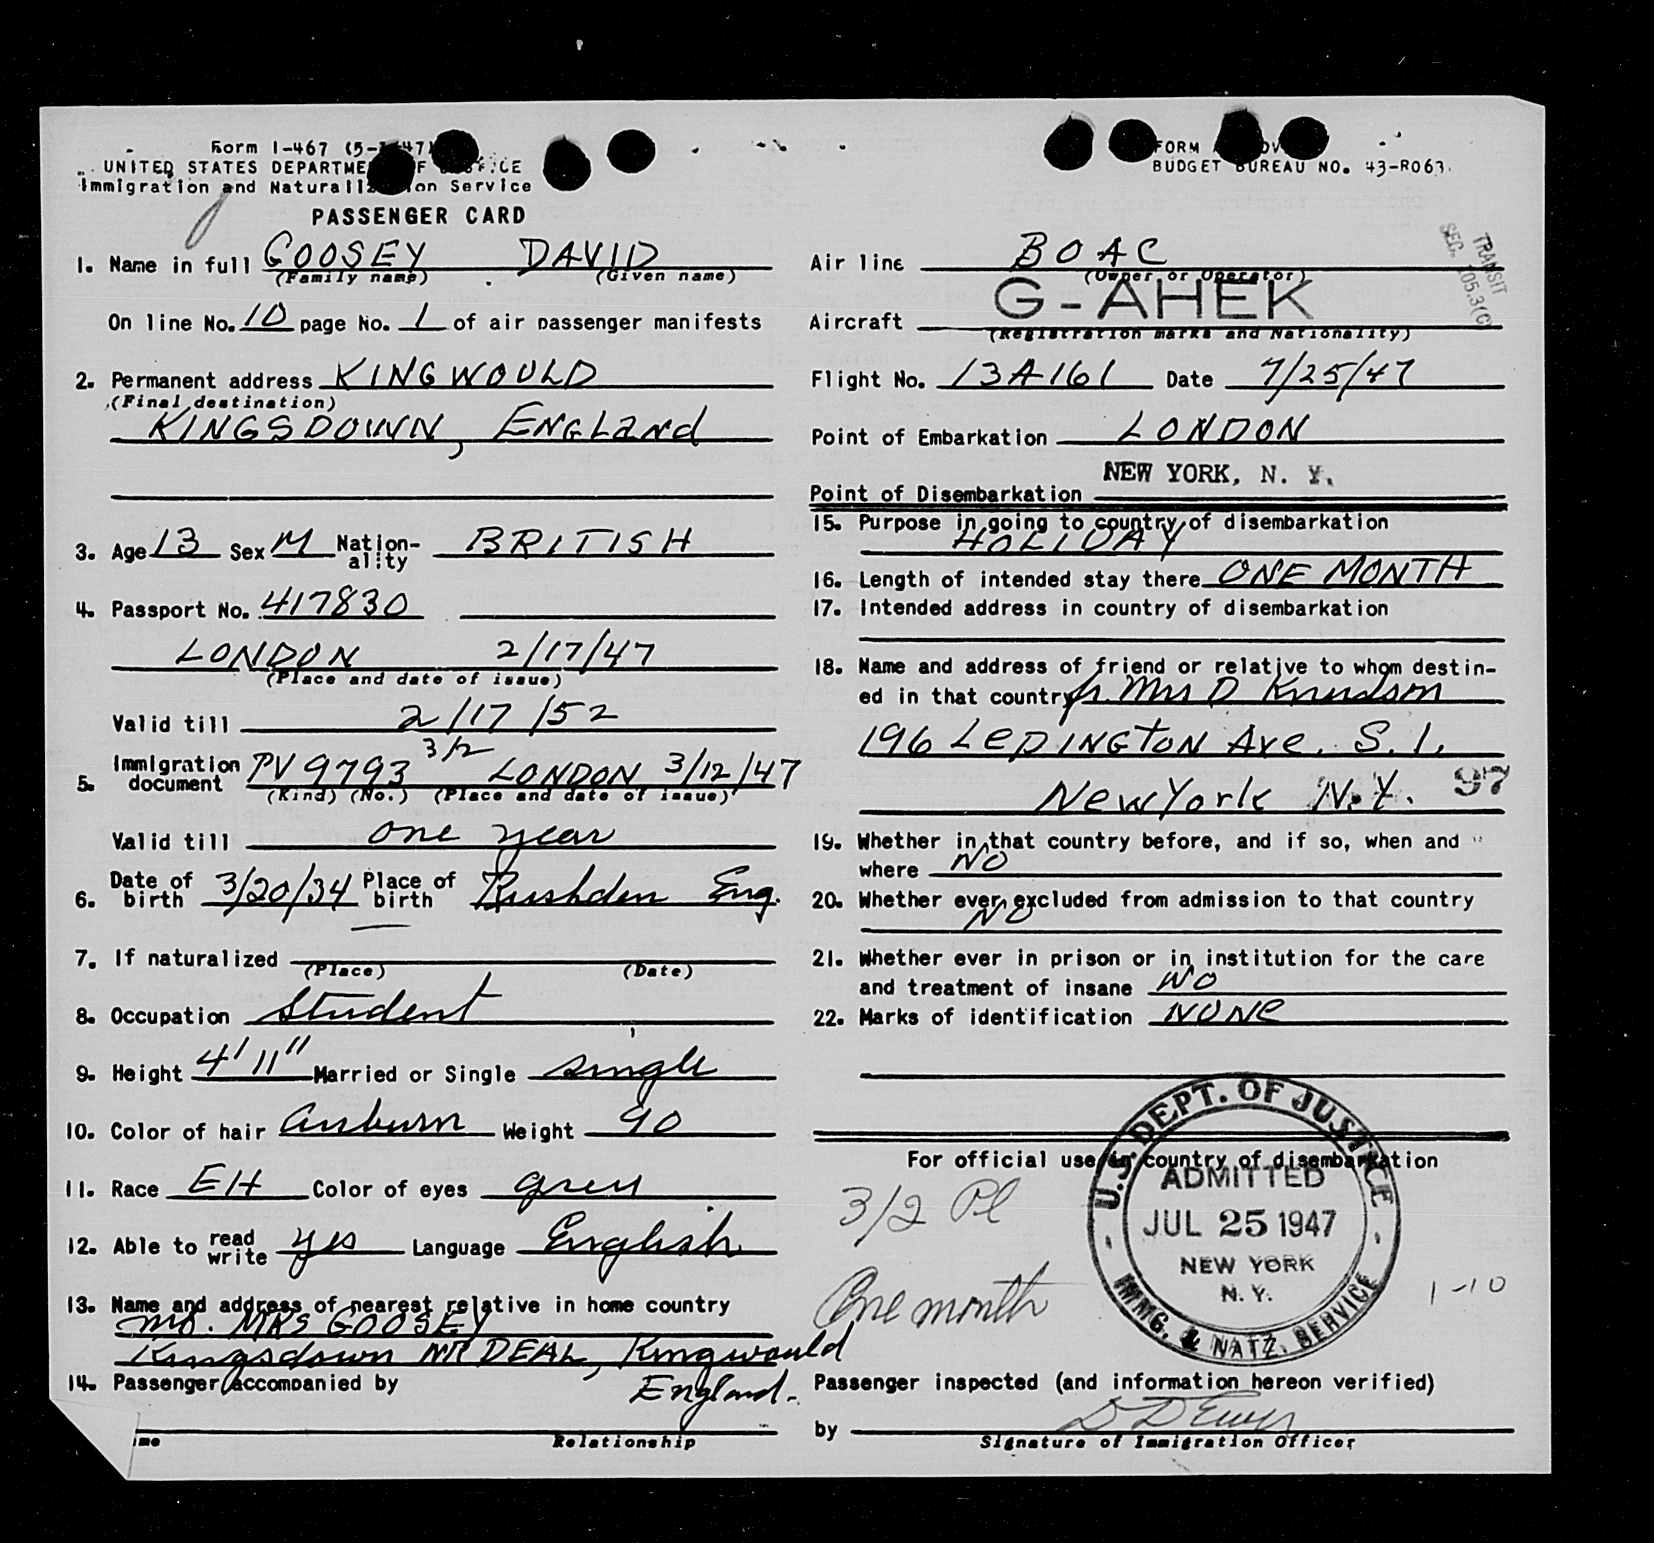 Form I-467
UNITED STATES
Immigration and Service
PASSENGER CARD
1. Name in full GOOSEY DAVID
(Family name) (Given name)
On line No. 10 page No. 1 of air passenger manifests
2. Permanent address KINGWOULD
(Final destination)
KINGSDOWN, ENGLANd
3. Age 13 Sex M Nation-ality BRITISH
4. Passport No. 417830
LONDON 2/17/47
(Place and date of issue)
Valid till 2/17/52
3/2
5. Immigration document PV 9793 LONDON 3/12/47
(Kind) (No.) (Place and date of issue)
Valid till one year
6. Date of birth 3/20/34 Place of birth Rushden Eng.
7. If naturalized
(Place) (Date)
8. Occupation Student
9. Height 4' 11" Married or Single single
10. Color of hair auburn Weight 90
11. Race EH Color of eyes
12. Able to read write yes Language English
13. Name and address of nearest relative in home country
MRS GOOSEY
Kingsdown NR DEAL, Kingwould
England.
14. Passenger accompanied by
Relationship
FORM
BUDGET BUREAU NO. 43-R063.
TRANSIT
SEC. 105.3(C)
Air line BOAC
(Owner or Operator)
Aircraft G-AHEK
(Registration marks and Nationality)
Flight No. 13A161 Date 7/25/47
Point of Embarkation LONDON
Point of Disembarkation NEW YORK, N. Y.
15. Purpose in going to country of disembarkation
HOLIDAY
16. Length of intended stay there ONE MONTH
17. Intended address in country of disembarkation
18. Name and address of friend or relative to whom destin-
ed in that country Mrs D Knudson
196 LEDINGTON Ave. S.I.
New York N.Y. 97
19. Whether in that country before, and if so, when and
where NO
20. Whether ever excluded from admission to that country
NO
21. Whether ever in prison or in institution for the care
and treatment of insane NO
22. Marks of identification NONE
For official use in country of disembarkation
3/2 Pl
One month
U.S. DEPT. OF JUSTICE
ADMITTED
JUL 25 1947
NEW YORK
N. Y.
IMMG. & NATZ. SERVICE
1-10
Passenger inspected (and information hereon verified)
by
Signature of Immigration Officer